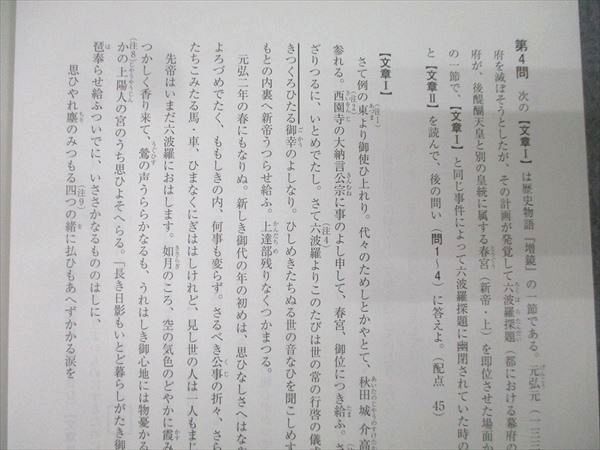 第4問　次の【文章Ⅰ】は歴史物語『増鏡』の一節である。元弘元（一三三
府を滅ぼそうとしたが、その計画が発覚して六波羅探題（都における幕府の
府が、後醍醐天皇と別の皇統に属する春宮（新帝・上）を即位させた場面か
の一節で、【文章Ⅰ】と同じ事件によって六波羅探題に幽閉されていた時の
と【文章Ⅱ】を読んで、後の問い（問1～4）に答えよ。（配点　45）
【文章Ⅰ】
さて例の東より御使ひ上れり。代々のためしとかやとて、秋田城介高
参れる。西園寺の大納言公宗に事のよし申して、春宮、御位につき給ふ。さ
ざりつるに、いとめでたし。さて六波羅よりこのたびは世の常の行啓の儀
きつくろひたる御幸のよしなり。ひしめきたちぬる世の音なひを聞こしめす
もとの内裏へ新帝うつらせ給ふ。上達部残りなくつかまつる。
元弘二年の春にもなりぬ。新しき御代の年の初めは、思ひなしさへはな
よろづめでたく、ももしきの内、何事も変らず。さるべき公事の折々、さら
たちこみたる馬・車、ひまなくにぎははしけれど、見し世の人は一人もまじ
先帝はいまだ六波羅におはします。如月のころ、空の気色のどやかに霞み
つかしく香り来て、鶯の声うららかなるも、うれはしき御心地には物憂かる
かの上陽人の宮のうち思ひよそへらる。「長き日影もいとど暮らしがたき御
琶奉らせ給ふついでに、いささかなるもののはしに、
思ひやれ塵のみつもる四つの緒に払ひもあへずかかる涙を